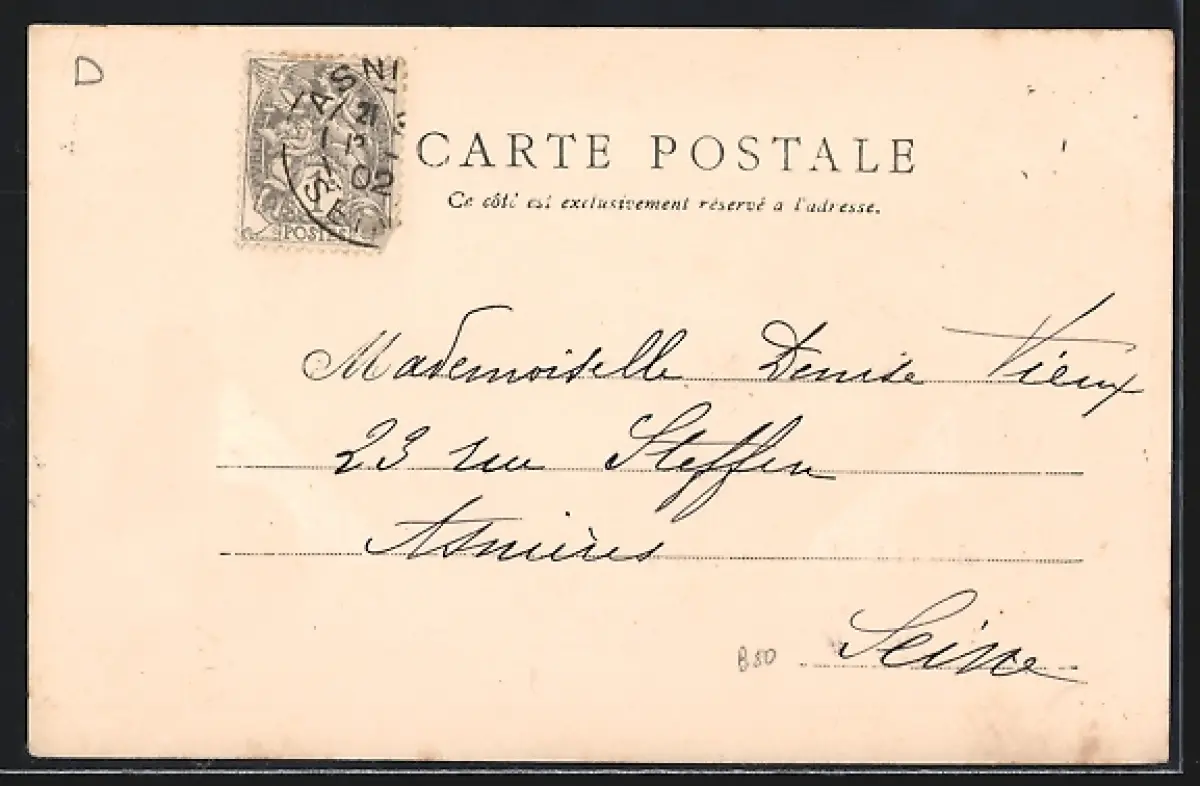 D
ASNI
21
02
SEIN
1c
POSTES
CARTE POSTALE
Ce côté est exclusivement réservé a l'adresse.
Mademoiselle Denise Vieux
23 rue Steffen
Asnières
Seine
B50